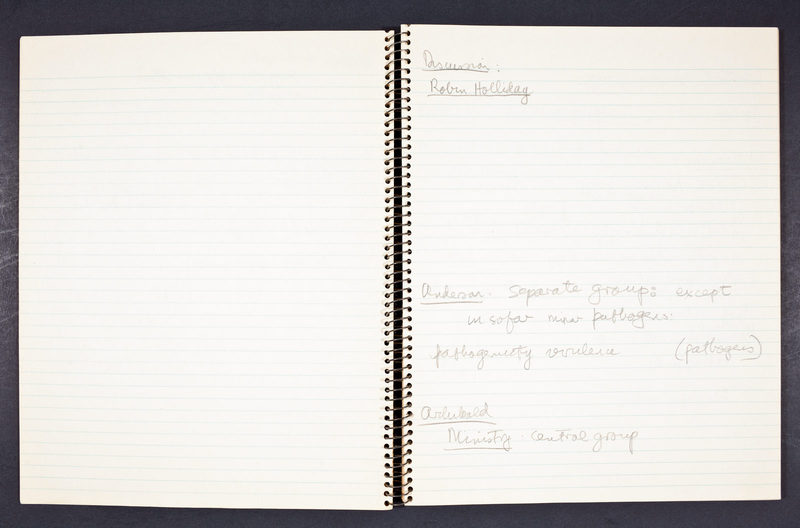 Discussion:
Robin Holliday
Anderson. Separate group: except
in sofar minor pathogens.
pathogenicity virulence (pathogens)
Archibald
Ministry. central group